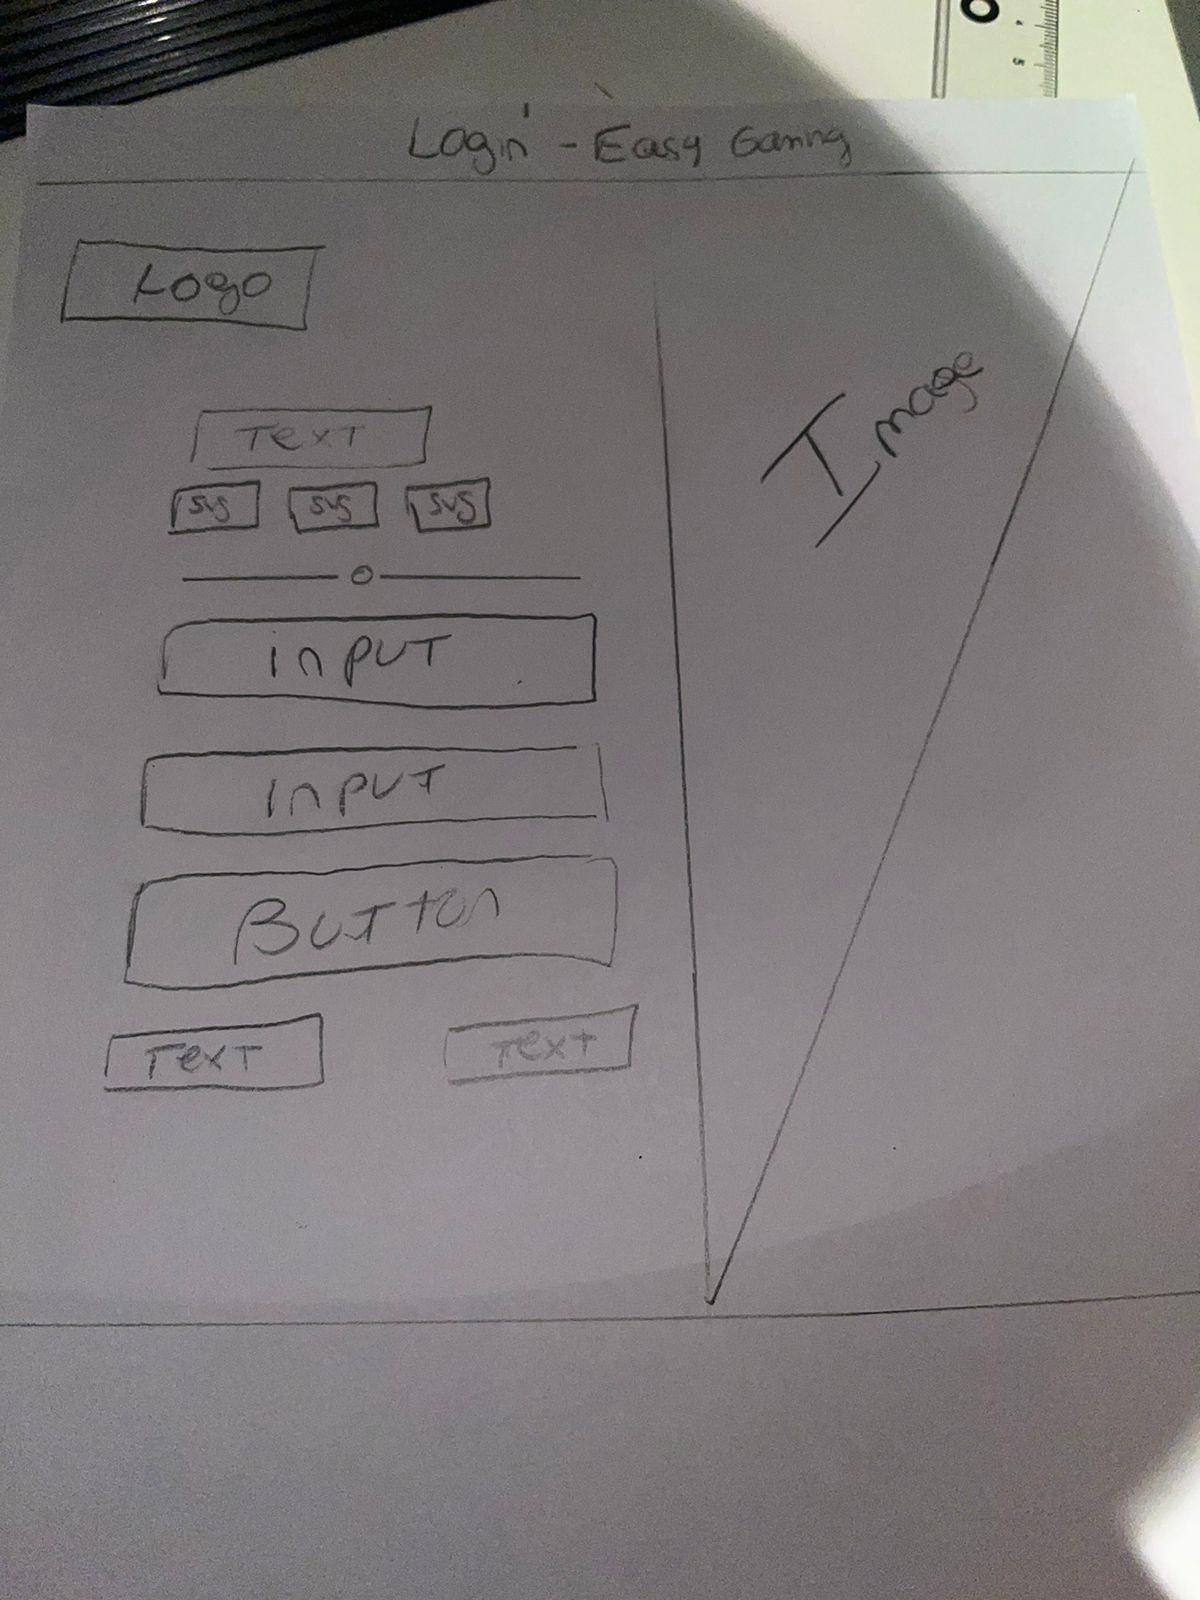 Login - Easy Gaming
Logo
Text
svg svg svg
Image
input
input
Button
Text Text
0
4
5